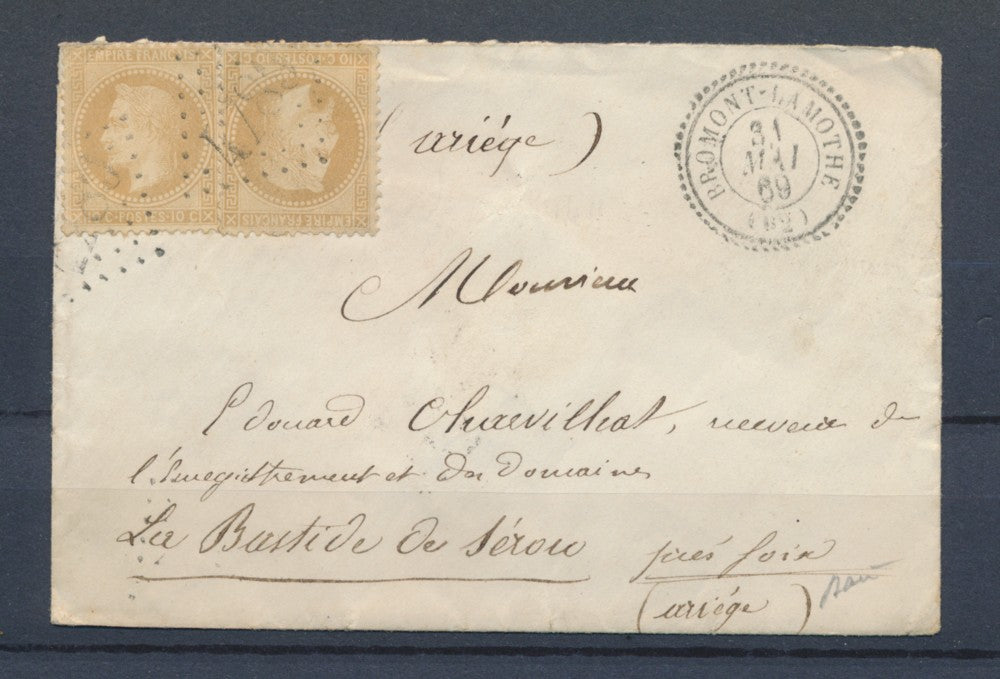 EMPIRE FRANÇAIS
10 C · POSTES · 10 C
10 C · POSTES · 10 C
EMPIRE FRANÇAIS
BROMONT-LAMOTHE
31
MAI
69
(62)
(ariége)
Monsieur
Edouard Charvilhat, receveur de
l'Enregistrement et des Domaines
La Bastide de Sérou près foix
(ariége)